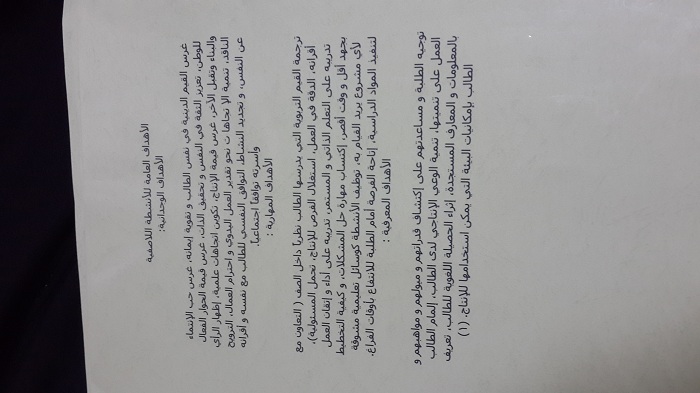 الأهداف العامة للأنشطة اللاصفية
الأهداف الوحدانية:
غرس القيم الدينية في نفس الطالب و تقوية إيمانه، غرس حب الإنتماء
للوطن، تعزيز الثقة في النفس و تحقيق الذات، غرس قيمة الحوار الفعال
والبناء وتقبل الآخر، غرس قيمة الإنتاج، تكوين اتجاهات علمية، إظهار الرأي
الناقد، تنمية الاتجاهات نحو تقدير العمل اليدوي و احترام العمال، الترويح
عن النفس، و تجديد النشاط، التوافق النفسي للطالب مع نفسه و أقرانه
وأسرته توافقاً اجتماعياً.
الأهداف المهارية :
ترجمة القيم التربوية التي يدرسها الطالب نظرياً داخل الصف ( التعاون مع
أقرانه، الدقة في العمل، استغلال الفرص للإنتاج، تحمل المسئولية)،
تدريبه على التعلم الذاتي و المستمر، تدريبه على أداء و إتقان العمل
بجهد أقل و وقت أقصر، إكتساب مهارة حل المشكلات، و كيفية التخطيط
لأي مشروع يريد القيام به، توظيف الأنشطة كوسائل تعليمية مشوقة
لتنفيذ المواد الدراسية، إتاحة الفرصة أمام الطلبة للانتفاع بأوقات الفراغ.
الأهداف المعرفية :
توجيه الطلبة و مساعدتهم على إكتشاف قدراتهم و ميولهم و مواهبهم و
العمل على تنميتها، تنمية الوعي الإنتاجي لدى الطالب، إلمام الطالب
بالمعلومات و المعارف المستجدة، إثراء الحصيلة اللغوية للطالب، تعريف
الطالب بإمكاليات البيئة التي يمكن استخدامها للإنتاج. (١)